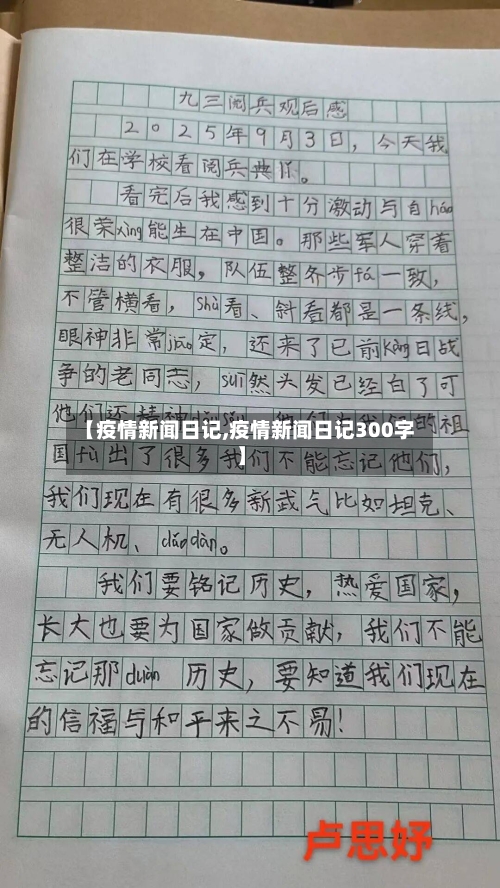 九三阅兵观后感
2025年9月3日，今天我
们在学校看阅兵典礼。
看完后我感到十分激动与自háo
很荣xìng能生在中国。那些军人穿着
整洁的衣服，队伍整齐步fá一致，
不管横看，shù看、斜看都是一条线，
眼神非常jiāo定，还来了已前kàng日战
争的老同志，suī然头发已经白了可
他们还精神
的祖
【疫情新闻日记,疫情新闻日记300字
】
国fù出了很多我们不能忘记他们，
我们现在有很多新武气比如坦克、
无人机、dǎodàn。
我们要铭记历史，热爱国家，
长大也要为国家做贡献，我们不能
忘记那duàn 历史，要知道我们现在
的信福与和平来之不易！
卢思妤